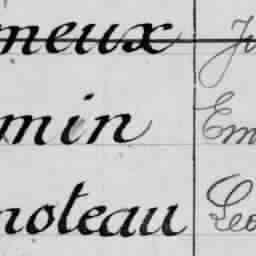 meux Ju
min Em
noteau Leo